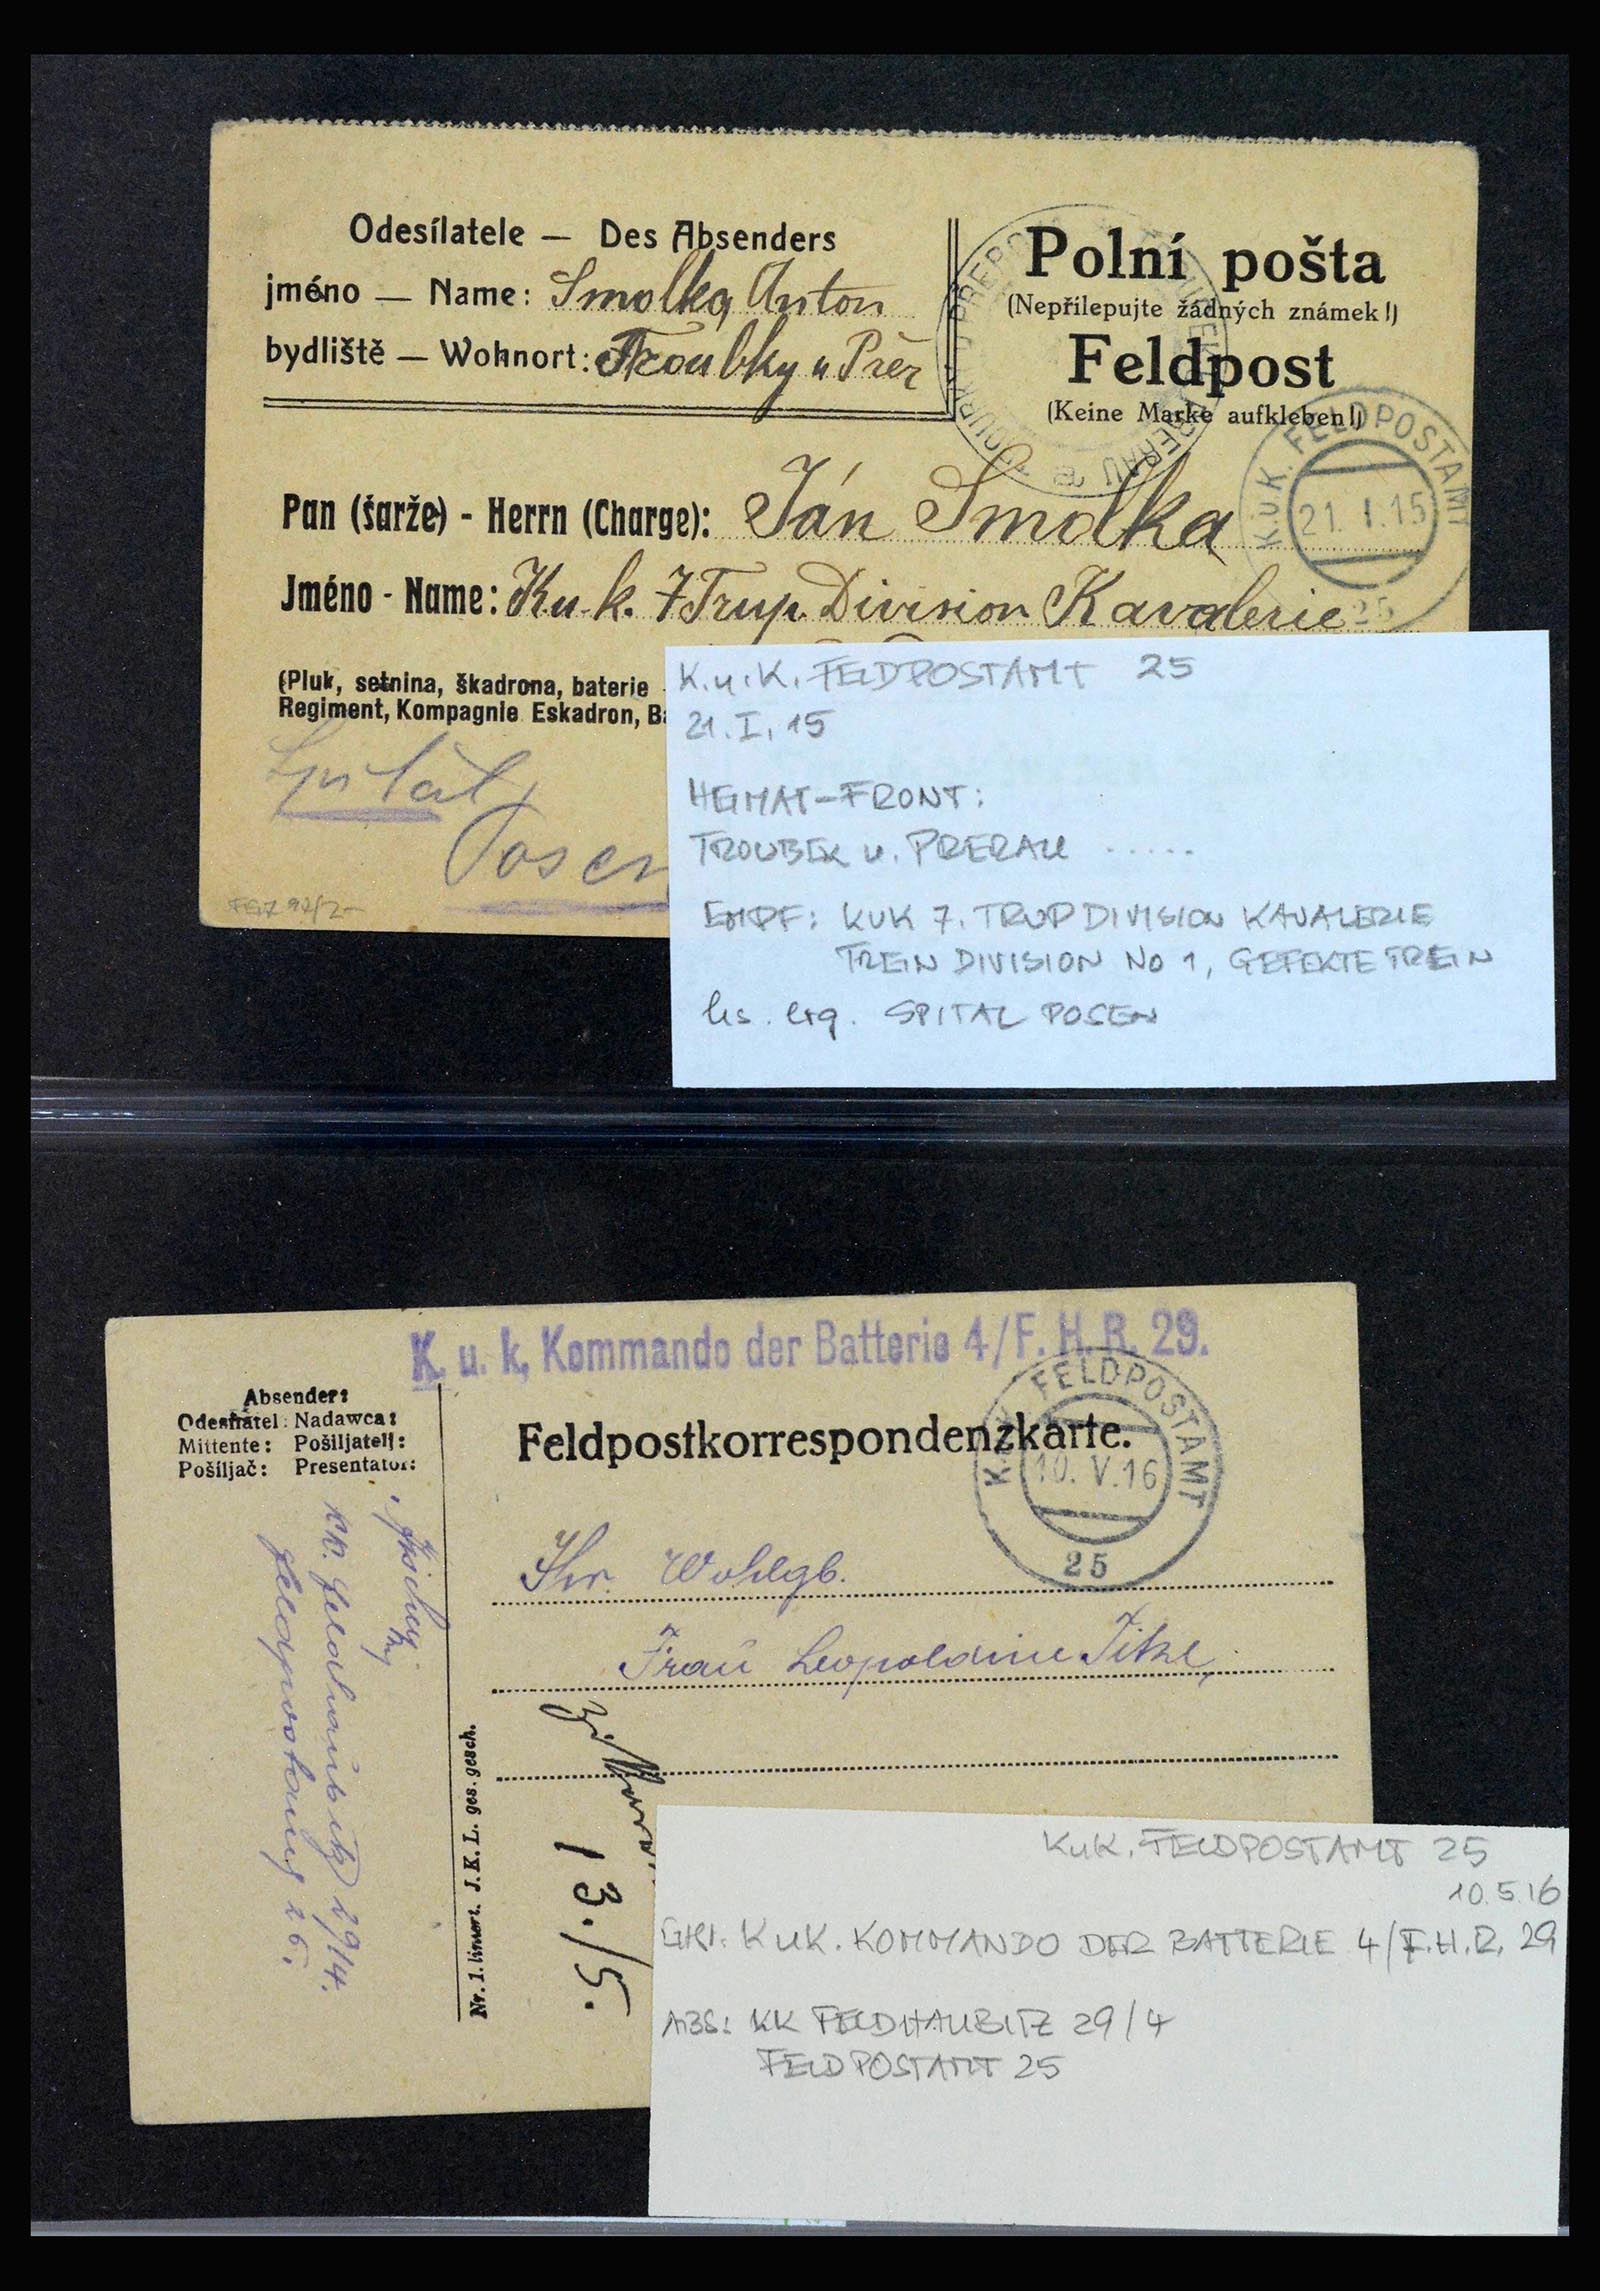 Odesílatele — Des Absenders
jméno — Name: Smolka Anton
bydliště — Wohnort: Troubky u Přer
Polní pošta
(Nepřilepujte žádných známek!)
Feldpost
(Keine Marke aufkleben!)
K.u.K. FELDPOSTAMT
21. I. 15
25
Pan (šarže) - Herrn (Charge): Ján Smolka
Jméno - Name: K u. k. 7 Trup. Division Kavalerie
(Pluk, setnina, škadrona, baterie
Regiment, Kompagnie Eskadron, Ba
Spital
Posen
K.u.K. FELDPOSTAMT 25
21. I. 15
HEIMAT-FRONT:
TROUBEK u. PRERAU .....
EMPF: KUK 7. TRUPDIVISION KAVALERIE
TREIN DIVISION No 1, GEFEKTETREIN
hs. erg. SPITAL POSEN
K. u. k. Kommando der Batterie 4/F. H. R. 29.
Absender:
Odesílatel: Nadawca:
Mittente: Pošiljatelj:
Pošiljač: Presentator:
Feldpostkorrespondenzkarte.
FELDPOSTAMT
10. V. 16
25
Ihr. Wohlgb.
Frau Leopoldine Titzl
KK. Feldhaubitz 29/4.
Feldpostamt 25.
Nr. 1. limort. J. K. L. ges. gesch.
13./5.
KuK. FELDPOSTAMT 25
10.5.16
KuK. KOMMANDO DER BATTERIE 4/F.H.R. 29
ABS: KK FELDHAUBITZ 29/4
FELDPOSTAMT 25